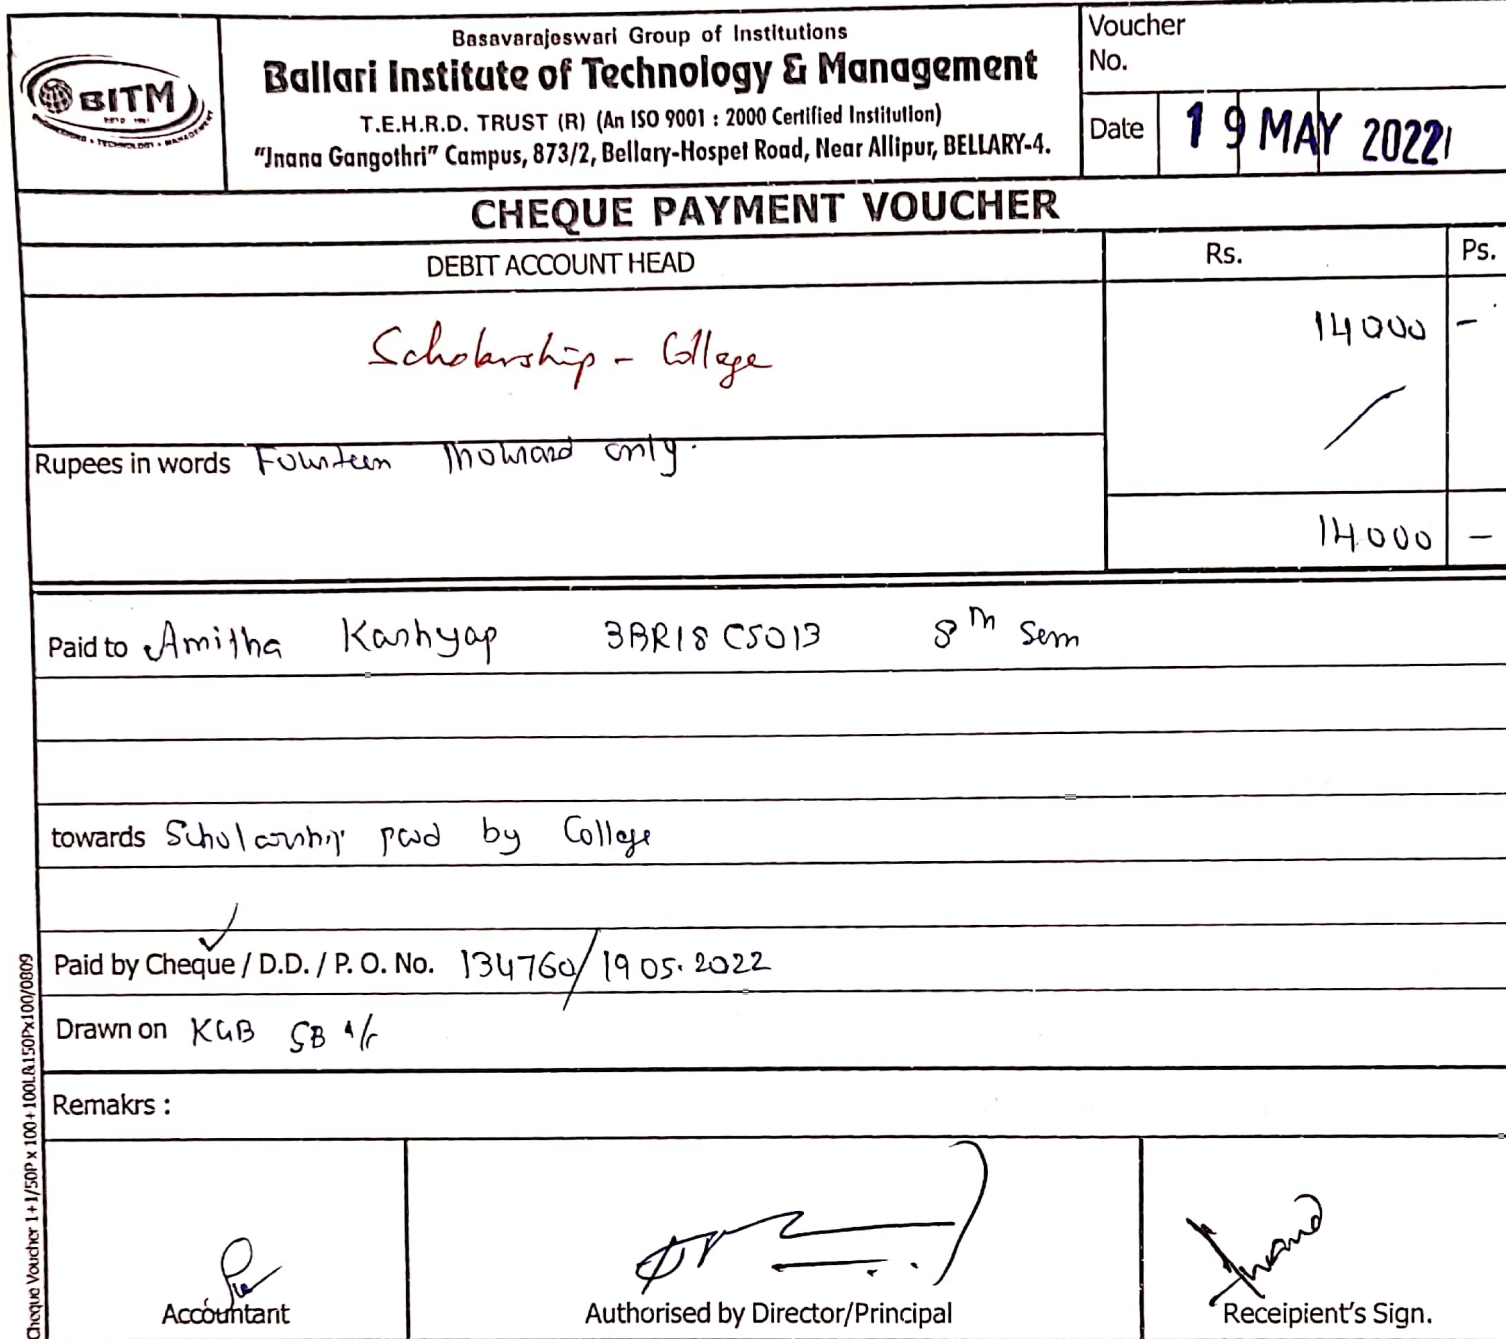 Basavarajeswari Group of Institutions
Ballari Institute of Technology & Management
T.E.H.R.D. TRUST (R) (An ISO 9001 : 2000 Certified Institution)
"Jnana Gangothri" Campus, 873/2, Bellary-Hospet Road, Near Allipur, BELLARY-4.
BITM
Voucher
No.
Date 19 MAY 2022
CHEQUE PAYMENT VOUCHER
DEBIT ACCOUNT HEAD Rs. Ps.
Scholarship - College 14000 -
Rupees in words Fourteen Thousand only.
14000 -
Paid to Amitha Kashyap 3BR18CS013 8th Sem
towards Scholarship paid by College
Paid by Cheque / D.D. / P. O. No. 134760/19 05.2022
Drawn on KGB SB a/c
Remakrs :
Accountant
Authorised by Director/Principal
Receipient's Sign.
Cheque Voucher 1+1/50P x 100+100L&150Px100/0809